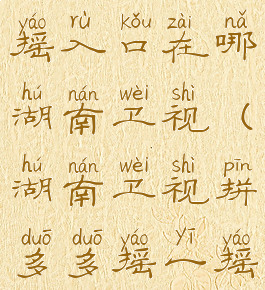 yáo rù kǒu zài nǎ
摇入口在哪
hú nán wèi shì
湖南卫视（
hú nán wèi shì pīn
湖南卫视拼
duō duō yáo yī yáo
多多摇一摇